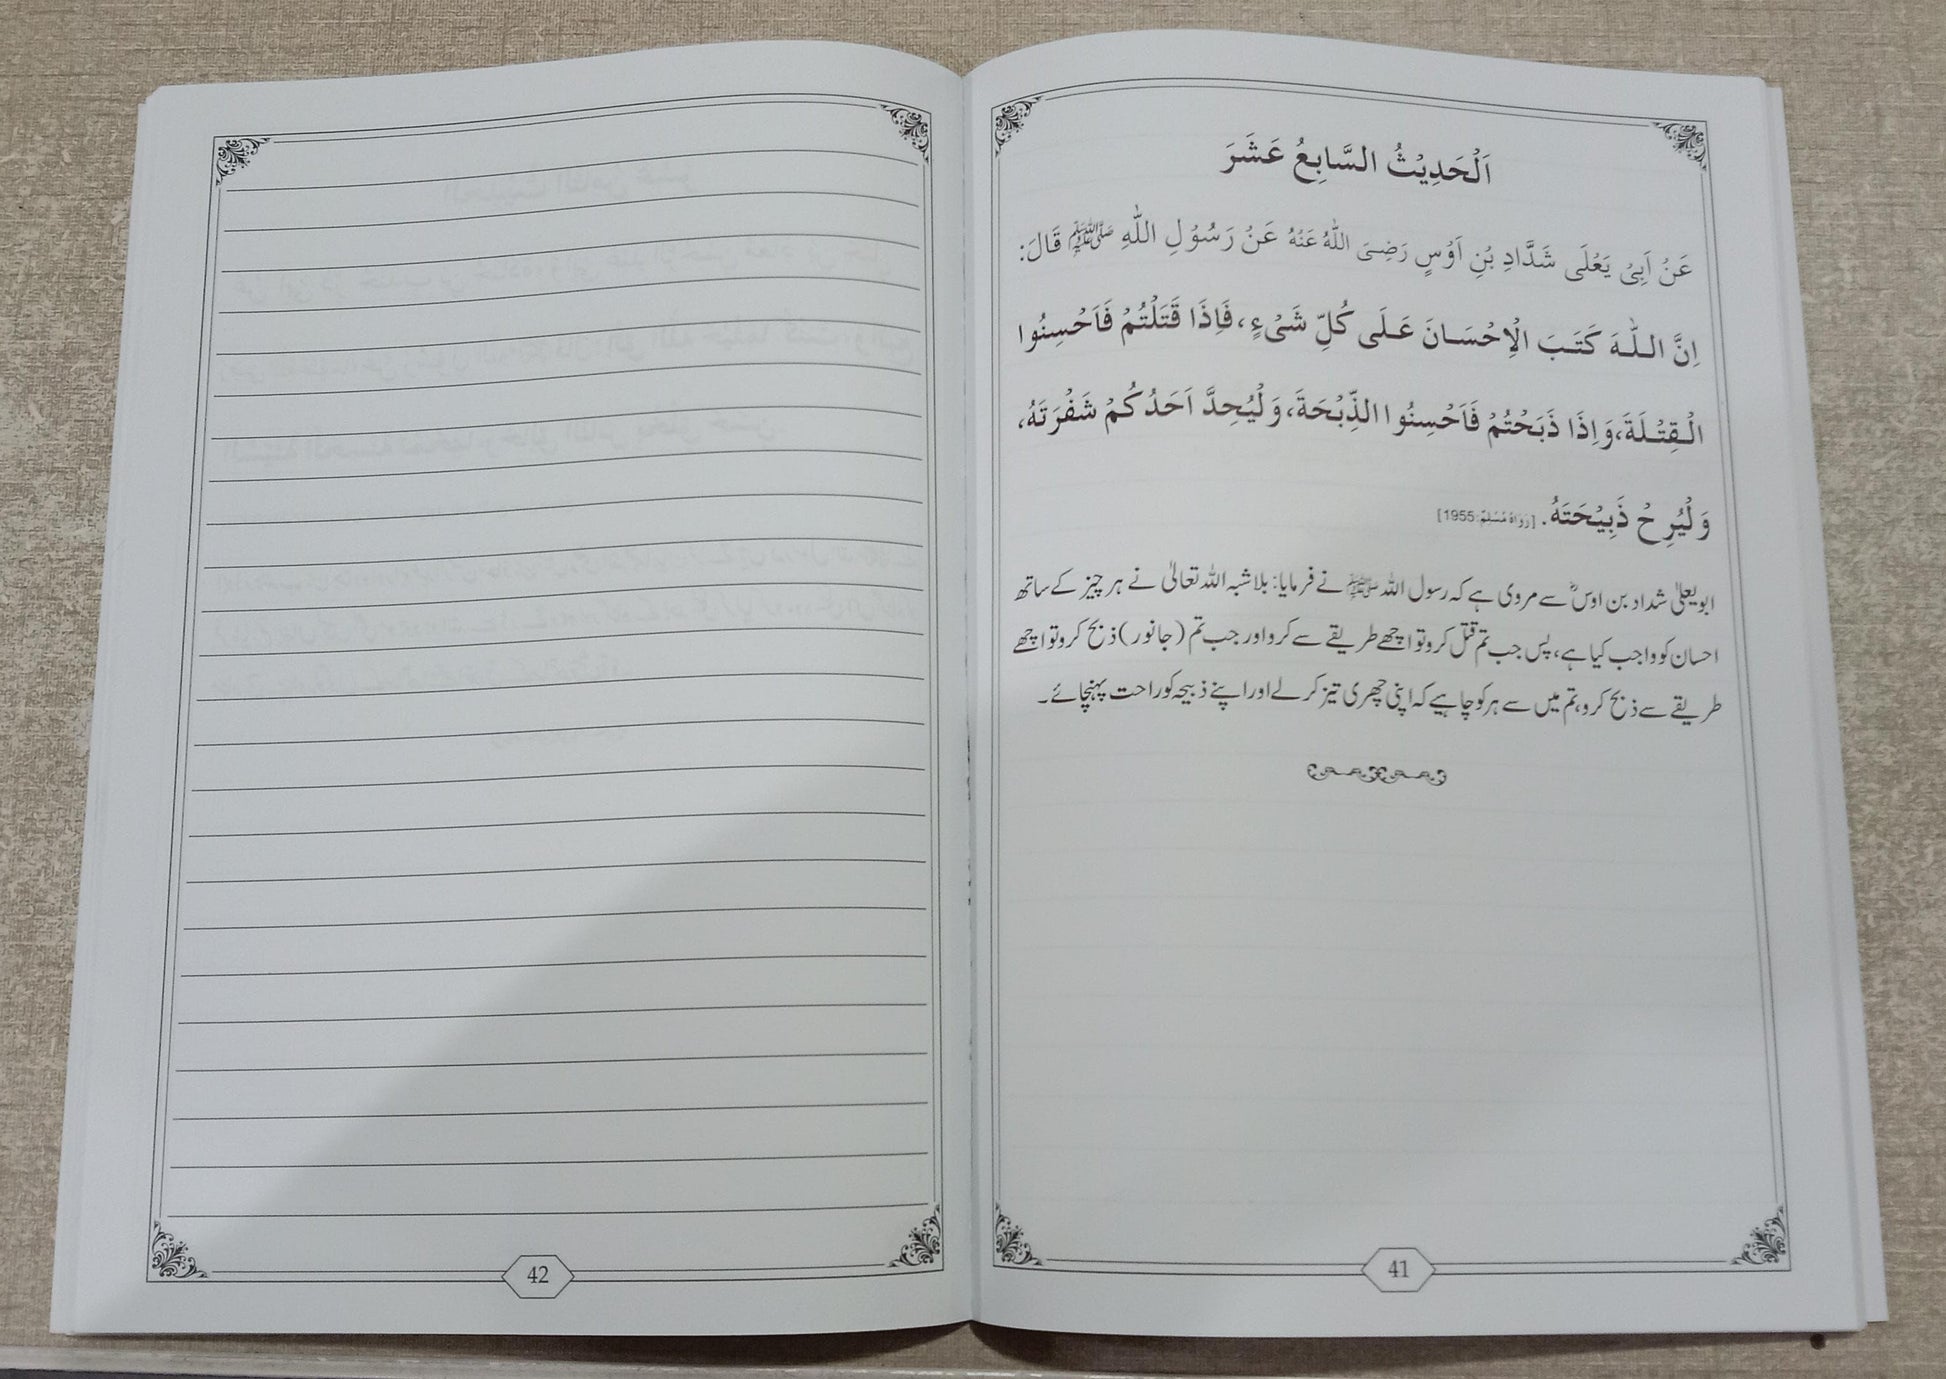 اَلْحَدِيْثُ السَّابِعُ عَشَرَ
عَنْ اَبِيْ يَعْلَى شَدَّادِ بْنِ اَوْسٍ رَضِىَ اللّٰهُ عَنْهُ عَنْ رَسُوْلِ اللّٰهِ ﷺ قَالَ:
اِنَّ اللّٰهَ كَتَبَ الْاِحْسَانَ عَلَى كُلِّ شَىْءٍ، فَاِذَا قَتَلْتُمْ فَاَحْسِنُوا
الْقِتْلَةَ، وَاِذَا ذَبَحْتُمْ فَاَحْسِنُوا الذِّبْحَةَ، وَلْيُحِدَّ اَحَدُكُمْ شَفْرَتَهُ،
وَلْيُرِحْ ذَبِيْحَتَهُ. [رَوَاهُ مُسْلِمٌ:1955]
ابو یعلیٰ شداد بن اوسؓ سے مروی ہے کہ رسول اللہ ﷺ نے فرمایا: بلاشبہ اللہ تعالیٰ نے ہر چیز کے ساتھ
احسان کو واجب کیا ہے، پس جب تم قتل کرو تو اچھے طریقے سے کرو اور جب تم (جانور) ذبح کرو تو اچھے
طریقے سے ذبح کرو، تم میں سے ہر کو چاہیے کہ اپنی چھری تیز کرلے اور اپنے ذبیحہ کو راحت پہنچائے۔
41
42